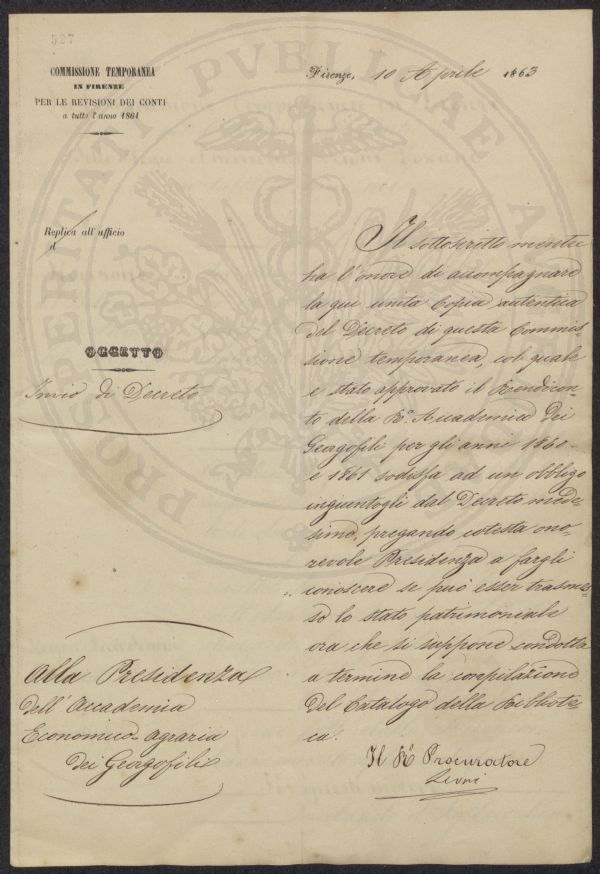 527
COMMISSIONE TEMPORANEA
IN FIRENZE
PER LE REVISIONI DEI CONTI
a tutto l'anno 1861
Firenze, 10 Aprile 1863
Replica all'ufficio
d
OGGETTO
Invio di Decreto
Il sottoscritto mentre
ha l'onore di accompagnare
la qui unita Copia autentica
del Decreto di questa Commis=
sione temporanea, col quale
è stato approvato il Rendicon=
to della R.a Accademia dei
Georgofili per gli anni 1860.
e 1861 sodisfa ad un obbligo
ingiuntogli dal Decreto mede=
simo, pregando cotesta ono=
revole Presidenza a fargli
conoscere se può esser trasmes=
so lo stato patrimoniale
ora che si suppone condotta
a termine la conpilazione
del Catalogo della Bibliote=
ca.
Il R.o Procuratore
Alla Presidenza
dell'Accademia
Economico-Agraria
dei Georgofili
PROSPERITATI PVBLICAE